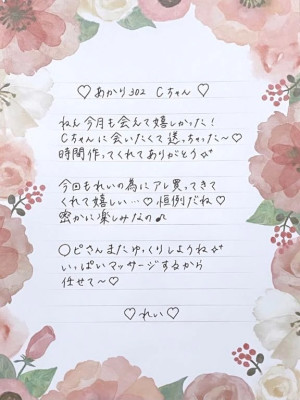 ♡ あかり302 Cちゃん ♡
ねえ今月も会えて嬉しかった！
Cちゃんに会いたくて送っちゃった〜♡
時間作ってくれてありがとう☆
今回もれいの為にアレ買ってきて
くれて嬉しい…♡恒例だね♡
密かに楽しみなの♪
〇ピさんまたゆっくりしようね☆
いっぱいマッサージするから
任せて〜♡
♡れい♡